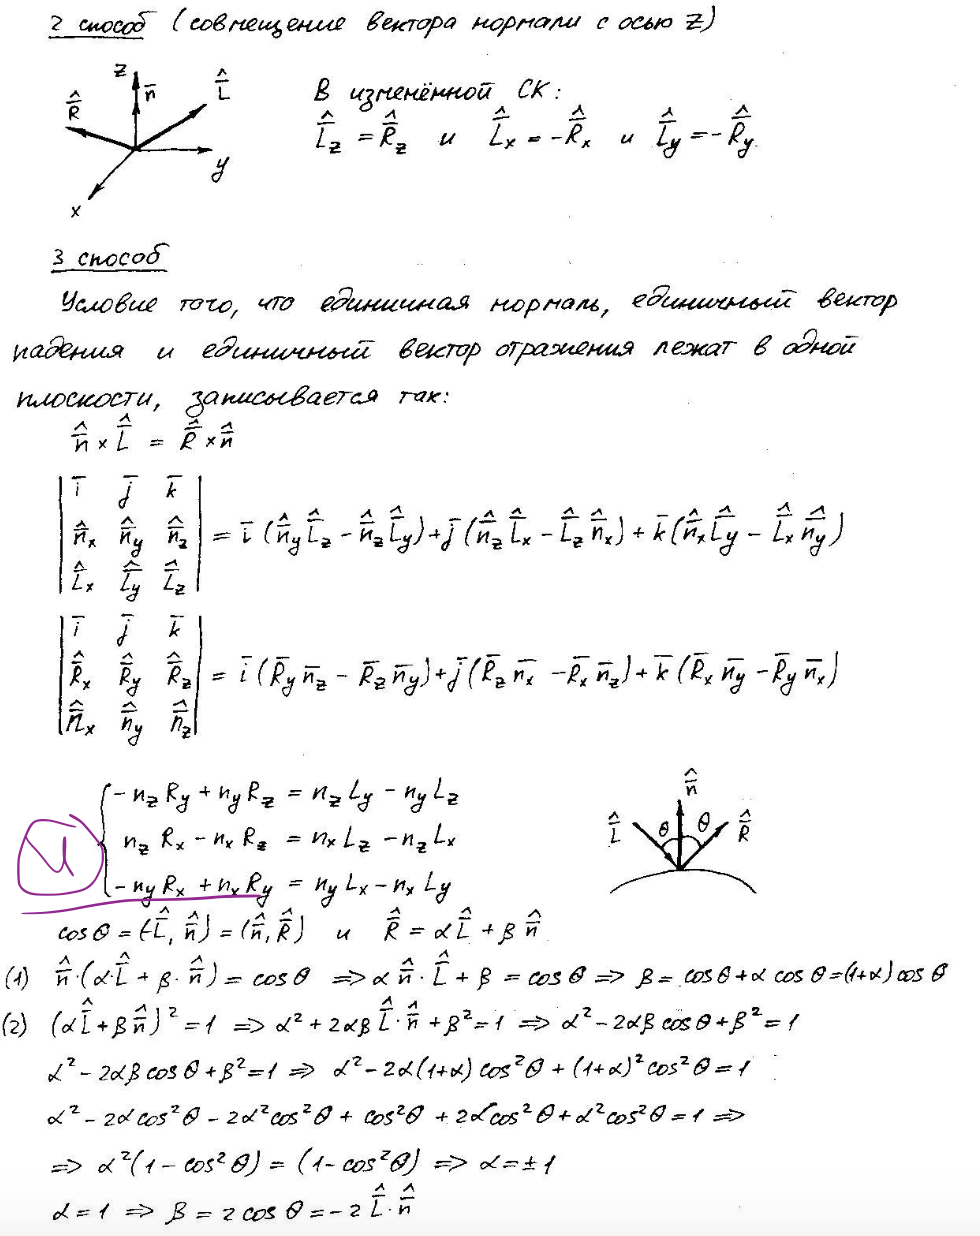 2 способ (совмещение вектора нормали с осью Z)
z n̄ L̂ R̂ y x
В изменённой СК:
L̂z = R̂z и L̂x = -R̂x и L̂y = -R̂y.
3 способ
Условие того, что единичная нормаль, единичный вектор
падения и единичный вектор отражения лежат в одной
плоскости, записывается так:
n̂ × L̂ = R̂ × n̂
| ī j̄ k̄ |
| n̂x n̂y n̂z | = ī (n̂y L̂z - n̂z L̂y) + j̄ (n̂z L̂x - L̂z n̂x) + k̄ (n̂x L̂y - L̂x n̂y)
| L̂x L̂y L̂z |
| ī j̄ k̄ |
| R̂x R̂y R̂z | = ī (R̄y n̄z - R̄z n̄y) + j̄ (R̄z n̄x - R̄x n̄z) + k̄ (R̄x n̄y - R̄y n̄x)
| n̂x n̂y n̂z |
{ -nz Ry + ny Rz = nz Ly - ny Lz
nz Rx - nx Rz = nx Lz - nz Lx
-ny Rx + nx Ry = ny Lx - nx Ly
И
n̂ L̂ θ θ R̂
cos θ = (-L̂, n̂) = (n̂, R̂) и R̂ = αL̂ + β n̂
(1) n̂·(α·L̂ + β·n̂) = cos θ ⇒ α n̂·L̂ + β = cos θ ⇒ β = cos θ + α cos θ = (1+α) cos θ
(2) (αL̂ + βn̂)² = 1 ⇒ α² + 2αβ L̂·n̂ + β² = 1 ⇒ α² - 2αβ cos θ + β² = 1
α² - 2αβ cos θ + β² = 1 ⇒ α² - 2α(1+α) cos² θ + (1+α)² cos² θ = 1
α² - 2α cos² θ - 2α² cos² θ + cos² θ + 2α cos² θ + α² cos² θ = 1 ⇒
⇒ α²(1 - cos² θ) = (1 - cos² θ) ⇒ α = ±1
α = 1 ⇒ β = 2 cos θ = -2 L̂·n̂